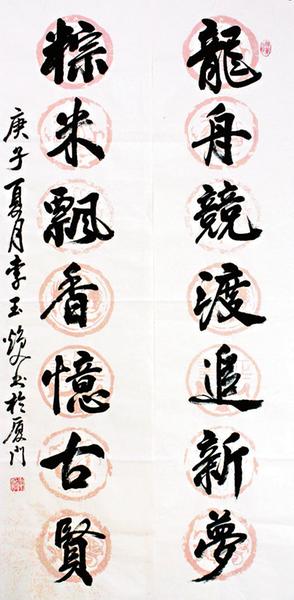 龍舟競渡追新夢
粽米飄香憶古賢
庚子夏月李玉焕书於厦門